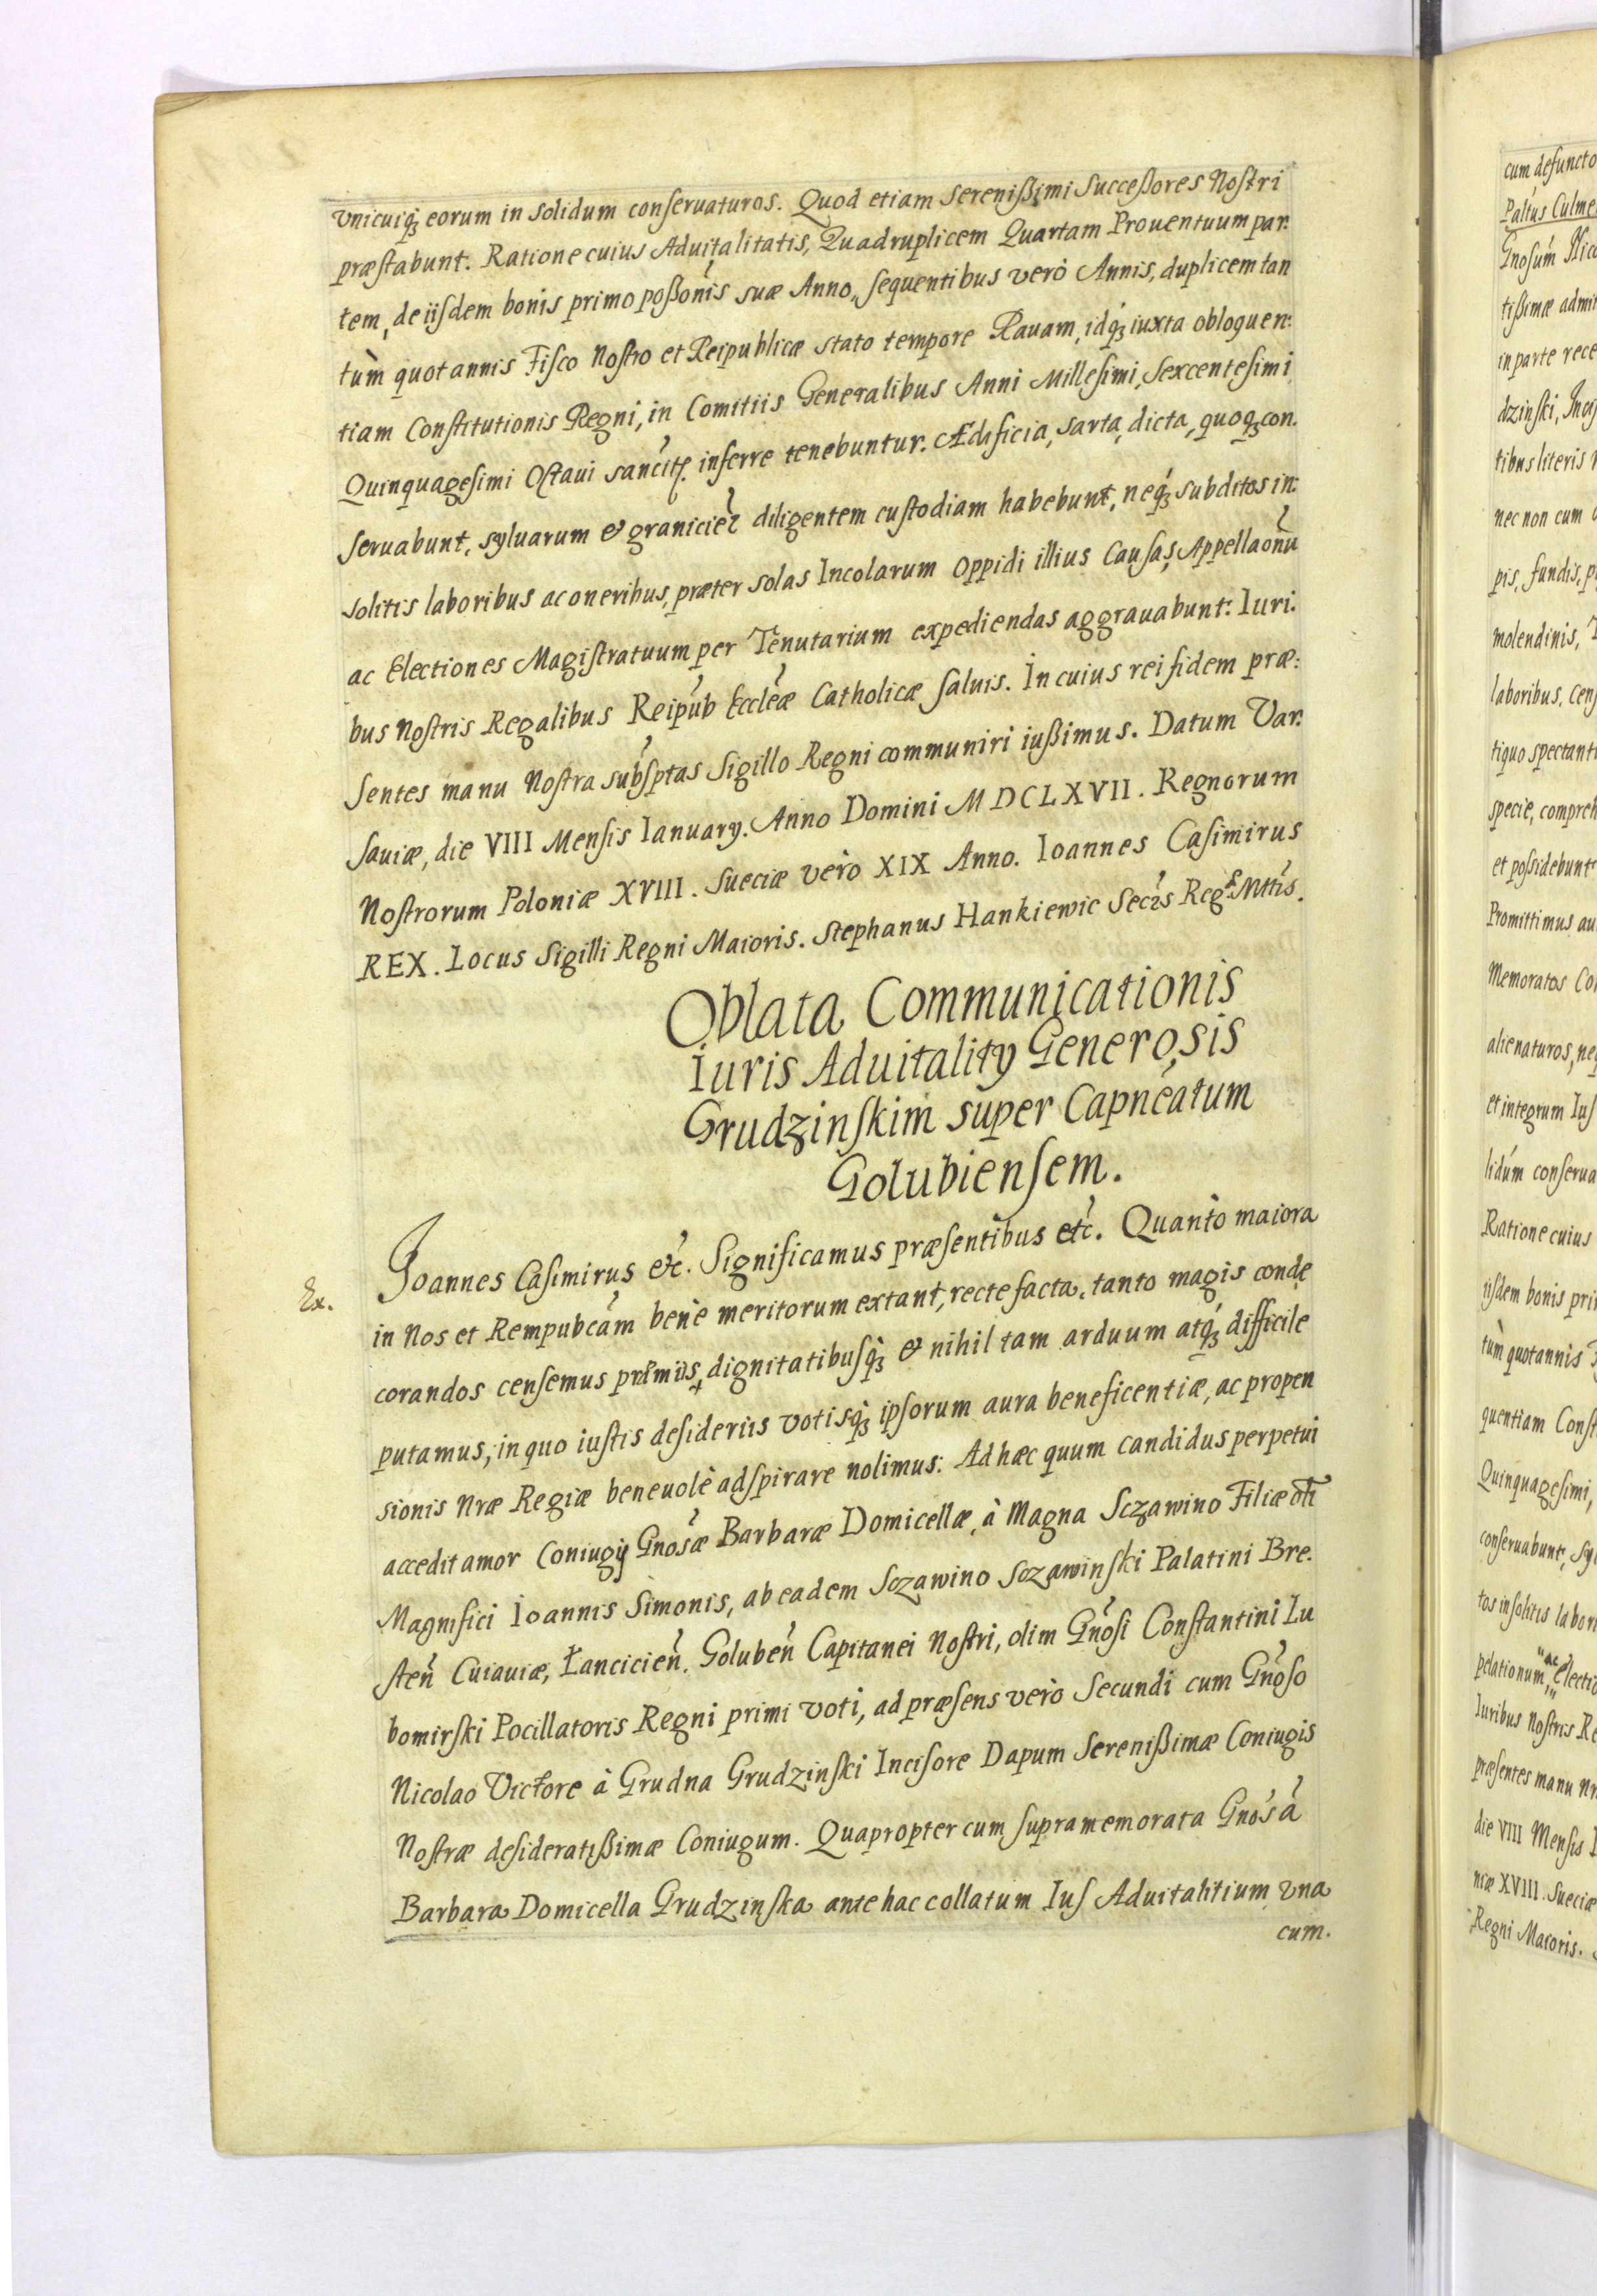 vnicuiq; eorum in solidum conseruaturos. Quod etiam serenißimi Succeßores Nostri
præstabunt. Ratione cuius Aduitalitatis, Quadruplicem Quartam Prouentuum par:
tem, de iisdem bonis primo poßonis suæ Anno, sequentibus verò Annis, duplicem tan
tùm quotannis Fisco Nostro et Reipublicæ stato tempore Rauam, idq; iuxta obloquen:
tiam Constitutionis Regni, in Comitiis Generalibus Anni Millesimi, Sexcentesimi
Quinquagesimi Octaui sancitę inferre tenebuntur. Ædificia, sarta, dicta, quoq; con.
seruabunt, syluarum & granicier diligentem custodiam habebunt, neq; subditos in:
solitis laboribus ac oneribus, præter solas Incolarum Oppidi illius Causas, Appellaonu
ac Electiones Magistratuum per Tenutarium expediendas aggrauabunt: Iuri.
bus Nostris Regalibus Reipub Eccleæ Catholicæ saluis. In cuius rei fidem præ:
sentes manu Nostra subsptas Sigillo Regni communiri iußimus. Datum Var:
sauiæ, die VIII Mensis Ianuary. Anno Domini MDCLXVII. Regnorum
Nostrorum Poloniæ XVIII. Sueciæ verò XIX Anno. Ioannes Casimirus
REX. Locus Sigilli Regni Maioris. Stephanus Hankiewic Secrs Regæ Mttis.
Oblata Communicationis
Iuris Aduitality Generosis
Grudzinskim super Capneatum
Golubiensem.
Ex. Ioannes Casimirus etc. Significamus præsentibus etc. Quantò maiora
in Nos et Rempubcam benè meritorum extant, recte facta, tanto magis conde
corandos censemus prœmiis, dignitatibusq; & nihil tam arduum atq; difficile
putamus, in quo iustis desideriis votisq; ipsorum aura beneficentiæ, ac propen
sionis Nræ Regiæ beneuolè adspirare nolimus: Ad hæc quum candidus perpetui
accedit amor Coniugij Gnosæ Barbaræ Domicellæ, à Magna Sczawino Filiæ oli
Magnifici Ioannis Simonis, ab eadem Sczawino Sczawinski Palatini Bre.
sten Cuiauiæ, Łancicien. Goluben Capitanei Nostri, olim Gnosi Constantini Lu
bomirski Pocillatoris Regni primi voti, ad præsens verò Secundi cum Gnoso
Nicolao Victore à Grudna Grudzinski Incisore Dapum Serenißimæ Coniugis
Nostræ desideratißimæ Coniugum. Quapropter cum supramemorata Gnosa
Barbara Domicella Grudzinska ante hac collatum Ius Aduitalitium vna
cum.
cum defuncto
Paltus Culme
Gnosum Nico
tißimæ admi
in parte rece
dzinski, Inci
tibus literis
nec non cum
pis, fundis, p
molendinis,
laboribus, cens
tiquo spectant
specie, compreh
et possidebunt
Promittimus au
Memoratos Co
alienaturos, ne
et integrum Ius
lidum conserua
Ratione cuius
iisdem bonis pri
tùm quotannis
quentiam Const
Quinquagesimi,
conseruabunt, sy
tos insolitis labor
pelationum, ac Electio
Iuribus Nostris Re
præsentes manu Nr
die VIII Mensis I
niæ XVIII. Sueciæ
Regni Maioris.